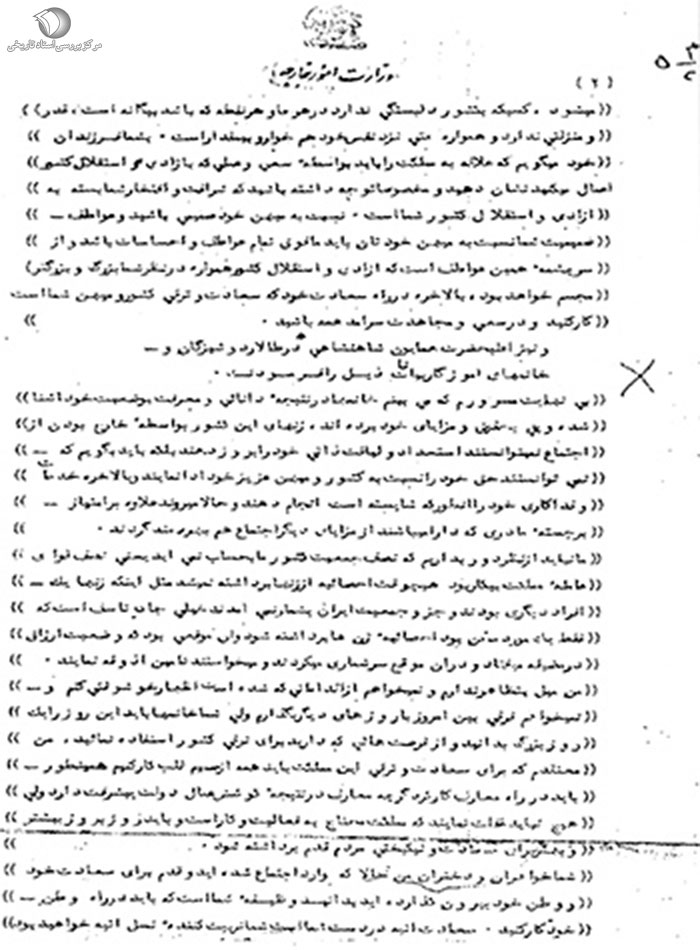 مرکز بررسی اسناد تاریخی
وزارت امور خارجه
(۲)
((میشود ۰ کسیکه بکشور دلبستگی ندارد در هر جا و هر نقطه که باشد بیگانه است ، قدر))
((و منزلتی ندارد و همواره حتی نزد نفس خود هم خوار و بیمقدار است ۰ بشما فرزندان))
((خود میگویم که علاقه به مملکت را باید بواسطه سعی و عملی که بازادی و استقلال کشور))
اعمال میکنید نشان دهید و مخصوصا توجه داشته باشید که شرافت و افتخار شما بسته به))
((ازادی و استقلال کشور شما است ۰ نسبت به میهن خود صمیمی باشید و عواطف ـ))
((صمیمیت شما نسبت به میهن خودتان باید مافوق تمام عواطف و احساسات باشد و از))
((سرچشمه همین عواطف است که ازادی و استقلال کشور همواره در نظر شما بزرگ و بزرگتر))
مجسم خواهد بود ، بالاخره در راه سعادت خود که سعادت و ترقی کشور و میهن شما است
((کار کنید و در سعی و مجاهدت سرامد همه باشید ۰))
و نیز اعلیحضرت همایون شاهنشاهی در تالار دوشیزگان و ـ
خانمهای اموزگار بیانات ذیل را فرمودند ۰
((بی نهایت مسرورم که می بینم خانمها در نتیجه دانائی و معرفت بوضعیت خود اشنا))
((شده و پی بحقوق و مزایای خود برده اند ، زنهای این کشور بواسطه خارج بودن از))
((اجتماع نمیتوانستند استعداد و لیاقت ذاتی خود را بروز دهند بلکه باید بگویم که ـ))
((نمی توانستند حق خود را نسبت به کشور و میهن عزیز خود ادا نمایند و بالاخره خدمات
((و فداکاری خود را انطور که شایسته است انجام دهند و حالا میروند علاوه بر امتیاز ـ))
((برجسته مادری که دارا میباشند از مزایای دیگر اجتماع هم بهره مند گردند ۰
((ما نباید از نظر دور بداریم که نصف جمعیت کشور ما بحساب نمی امد یعنی نصف قوای
((عامله مملکت بیکار بود هیچوقت احصائیه از زنها برداشته نمیشد مثل اینکه زنها یك ـ))
((افراد دیگری بودند و جزو جمعیت ایران بشمار نمی امدند خیلی جای تاسف است که))
((فقط یك مورد ممکن بود احصائیه زن ها برداشته شود و ان موقعی بود که وضعیت ارزاق))
((در مضیقه میافتاد و در ان موقع سرشماری میکردند و میخواستند تامین اذوقه نمایند ۰))
((من میل بتظاهر ندارم و نمیخواهم از اقداماتی که شده است اظهار خوشوقتی کنم و ـ))
((نمیخواهم فرقی بین امروز با روزهای دیگر بگذارم ولی شما خانمها باید این روز را یك))
((روز بزرگ بدانید و از فرصت هائی که دارید برای ترقی کشور استفاده نمائید ، من))
((معتقدم که برای سعادت و ترقی این مملکت باید همه از صمیم قلب کار کنیم همینطور ـ))
((باید در راه معارف کار کرد گرچه معارف در نتیجه کوشش عمال دولت پیشرفت دارد ولی))
((هیچ نباید غفلت نمایند که مملکت محتاج به فعالیت و کار است و باید روز بروز بیشتر))
((و بهتر برای سعادت و نیکبختی مردم قدم برداشته شود ۰))
((شما خواهران و دختران من حالا که وارد اجتماع شده اید و قدم برای سعادت خود))
((و وطن خود بیرون گذارده اید بدانید وظیفه شما است که باید در راه وطن ـ))
((خود کار کنید ۰ سعادت اتیه در دست شما است شما تربیت کننده نسل اتیه خواهید بود))